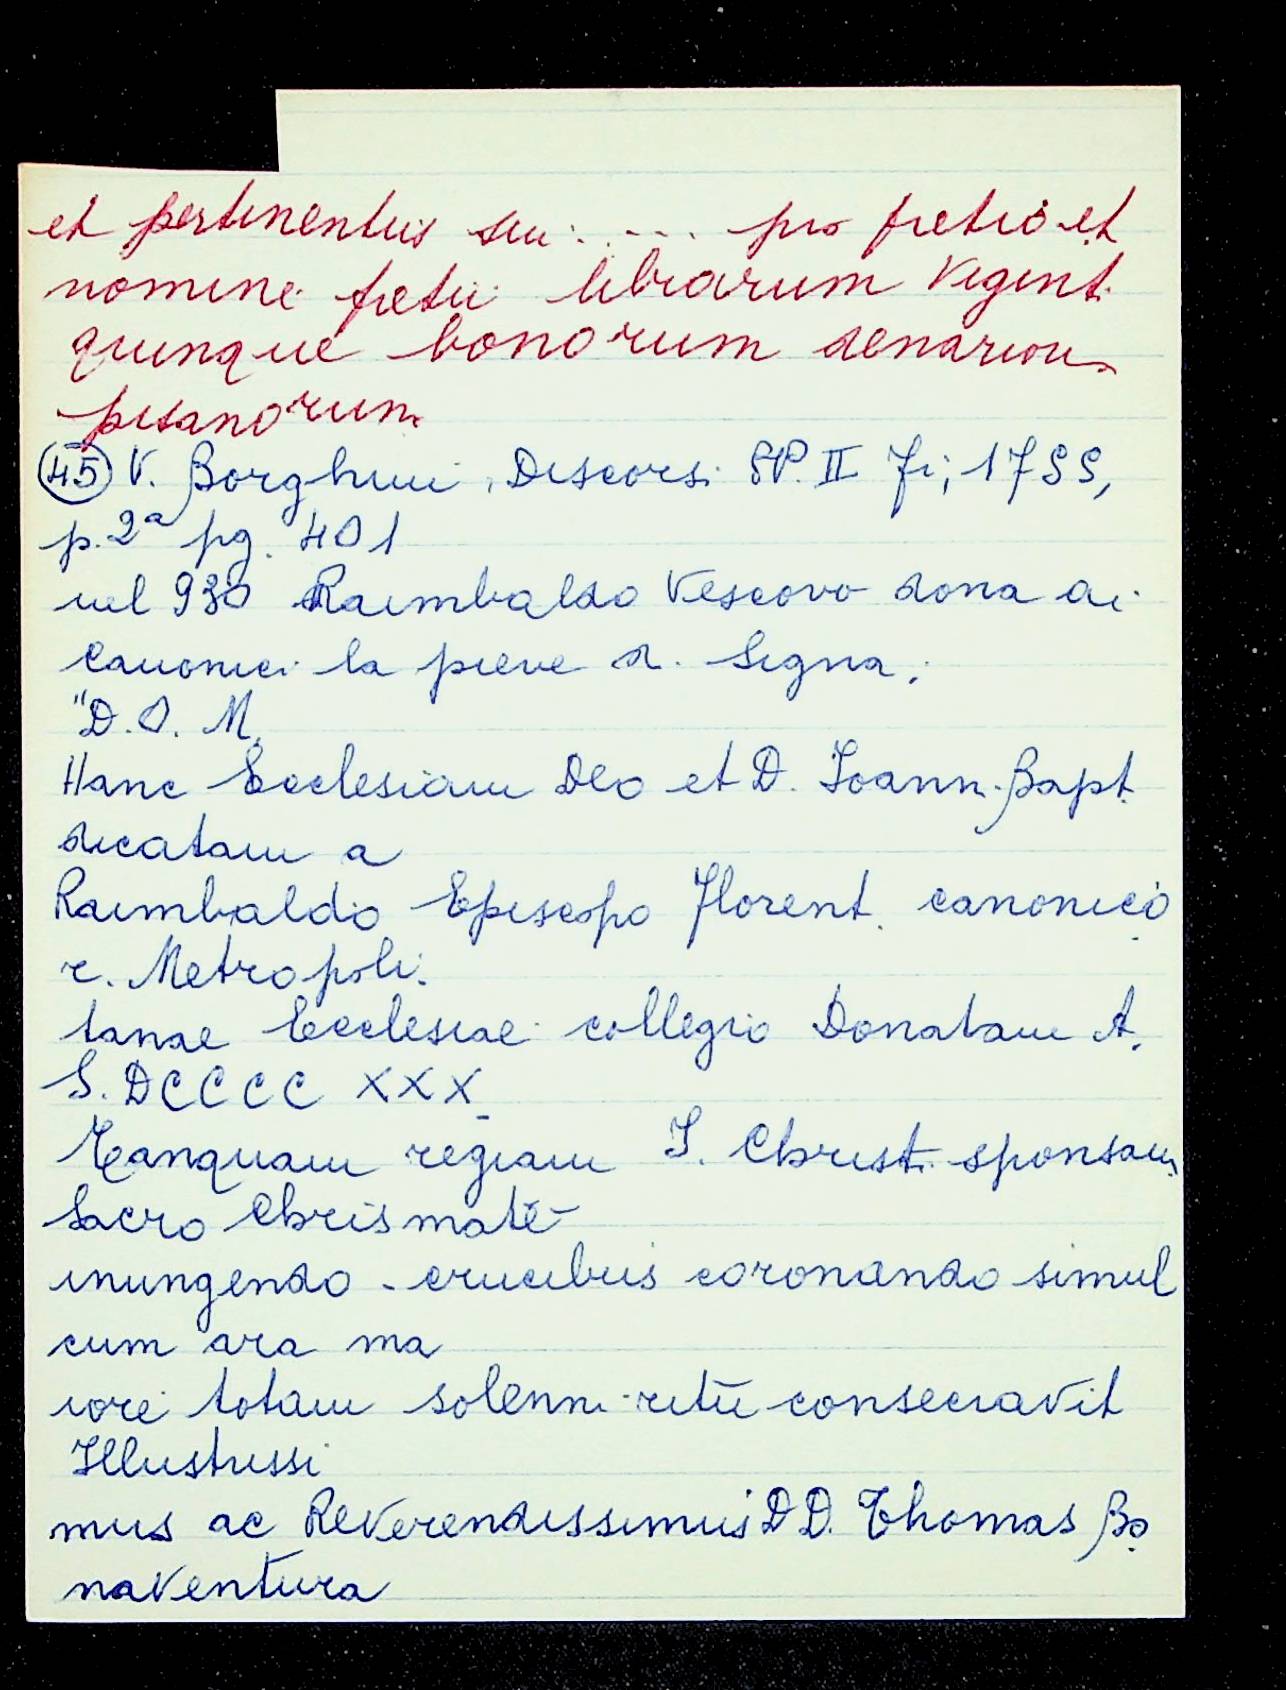 et pertinentiis sui..... pro pretio et
nomine pretii librarum vigint.
quinque bonorum denarioru
pisanorum
(45) V. Borghini, Discorsi PP. II Fi, 1755,
p. 2a pg. 401
nel 930 Raimbaldo Vescovo dona ai
canonici la pieve di Signa:
"D. O. M.
Hanc Ecclesiam Deo et D. Ioann. Bapt.
dicatam a
Raimbaldo Episcopo Florent. canonico
r. Metropoli.
tanae Ecclesiae collegio Donatam A.
S. DCCCC XXX
Tanquam regiam I. Christi sponsam
Sacro Chrismate
inungendo crucibus coronando simul
cum ara ma
iori totam solenni ritu consecravit
Illustrissi
mus ac Reverendissimus DD. Thomas Bo
naventura